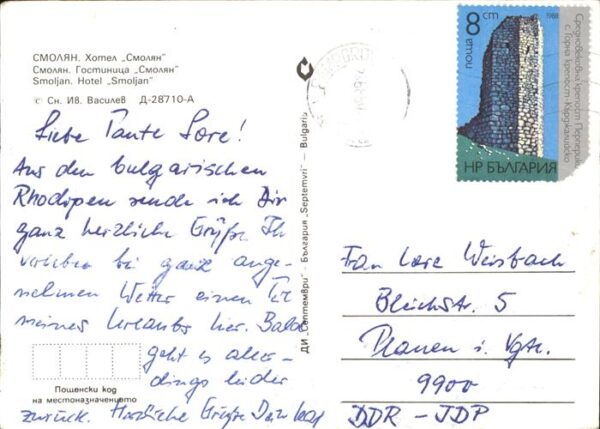 СМОЛЯН. Хотел „Смолян"
Смолян. Гостиница „Смолян"
Smoljan. Hotel „Smoljan"
© Сн. Ив. Василев Д-28710-А
Liebe Tante Lore!
Aus den bulgarischen
Rhodopen sende ich Dir
ganz herzliche Grüße. Ich
verlebe bei ganz ange-
nehmen Wetter einen Teil
meines Urlaubs hier. Bald
geht es aller-
dings leider
zurück. Herzliche Grüße Dein
Пощенски код
на местоназначението
ДИ „Септември" – България „Septemvri" – Bulgaria
поща 8 ст
1988
Средновековна крепост Перперик
с. Горна крепост Кърджалийско
НР БЪЛГАРИЯ
Frau Lore Weisbach
Bleichstr. 5
Plauen i. Vgtl.
9900
DDR – JDP